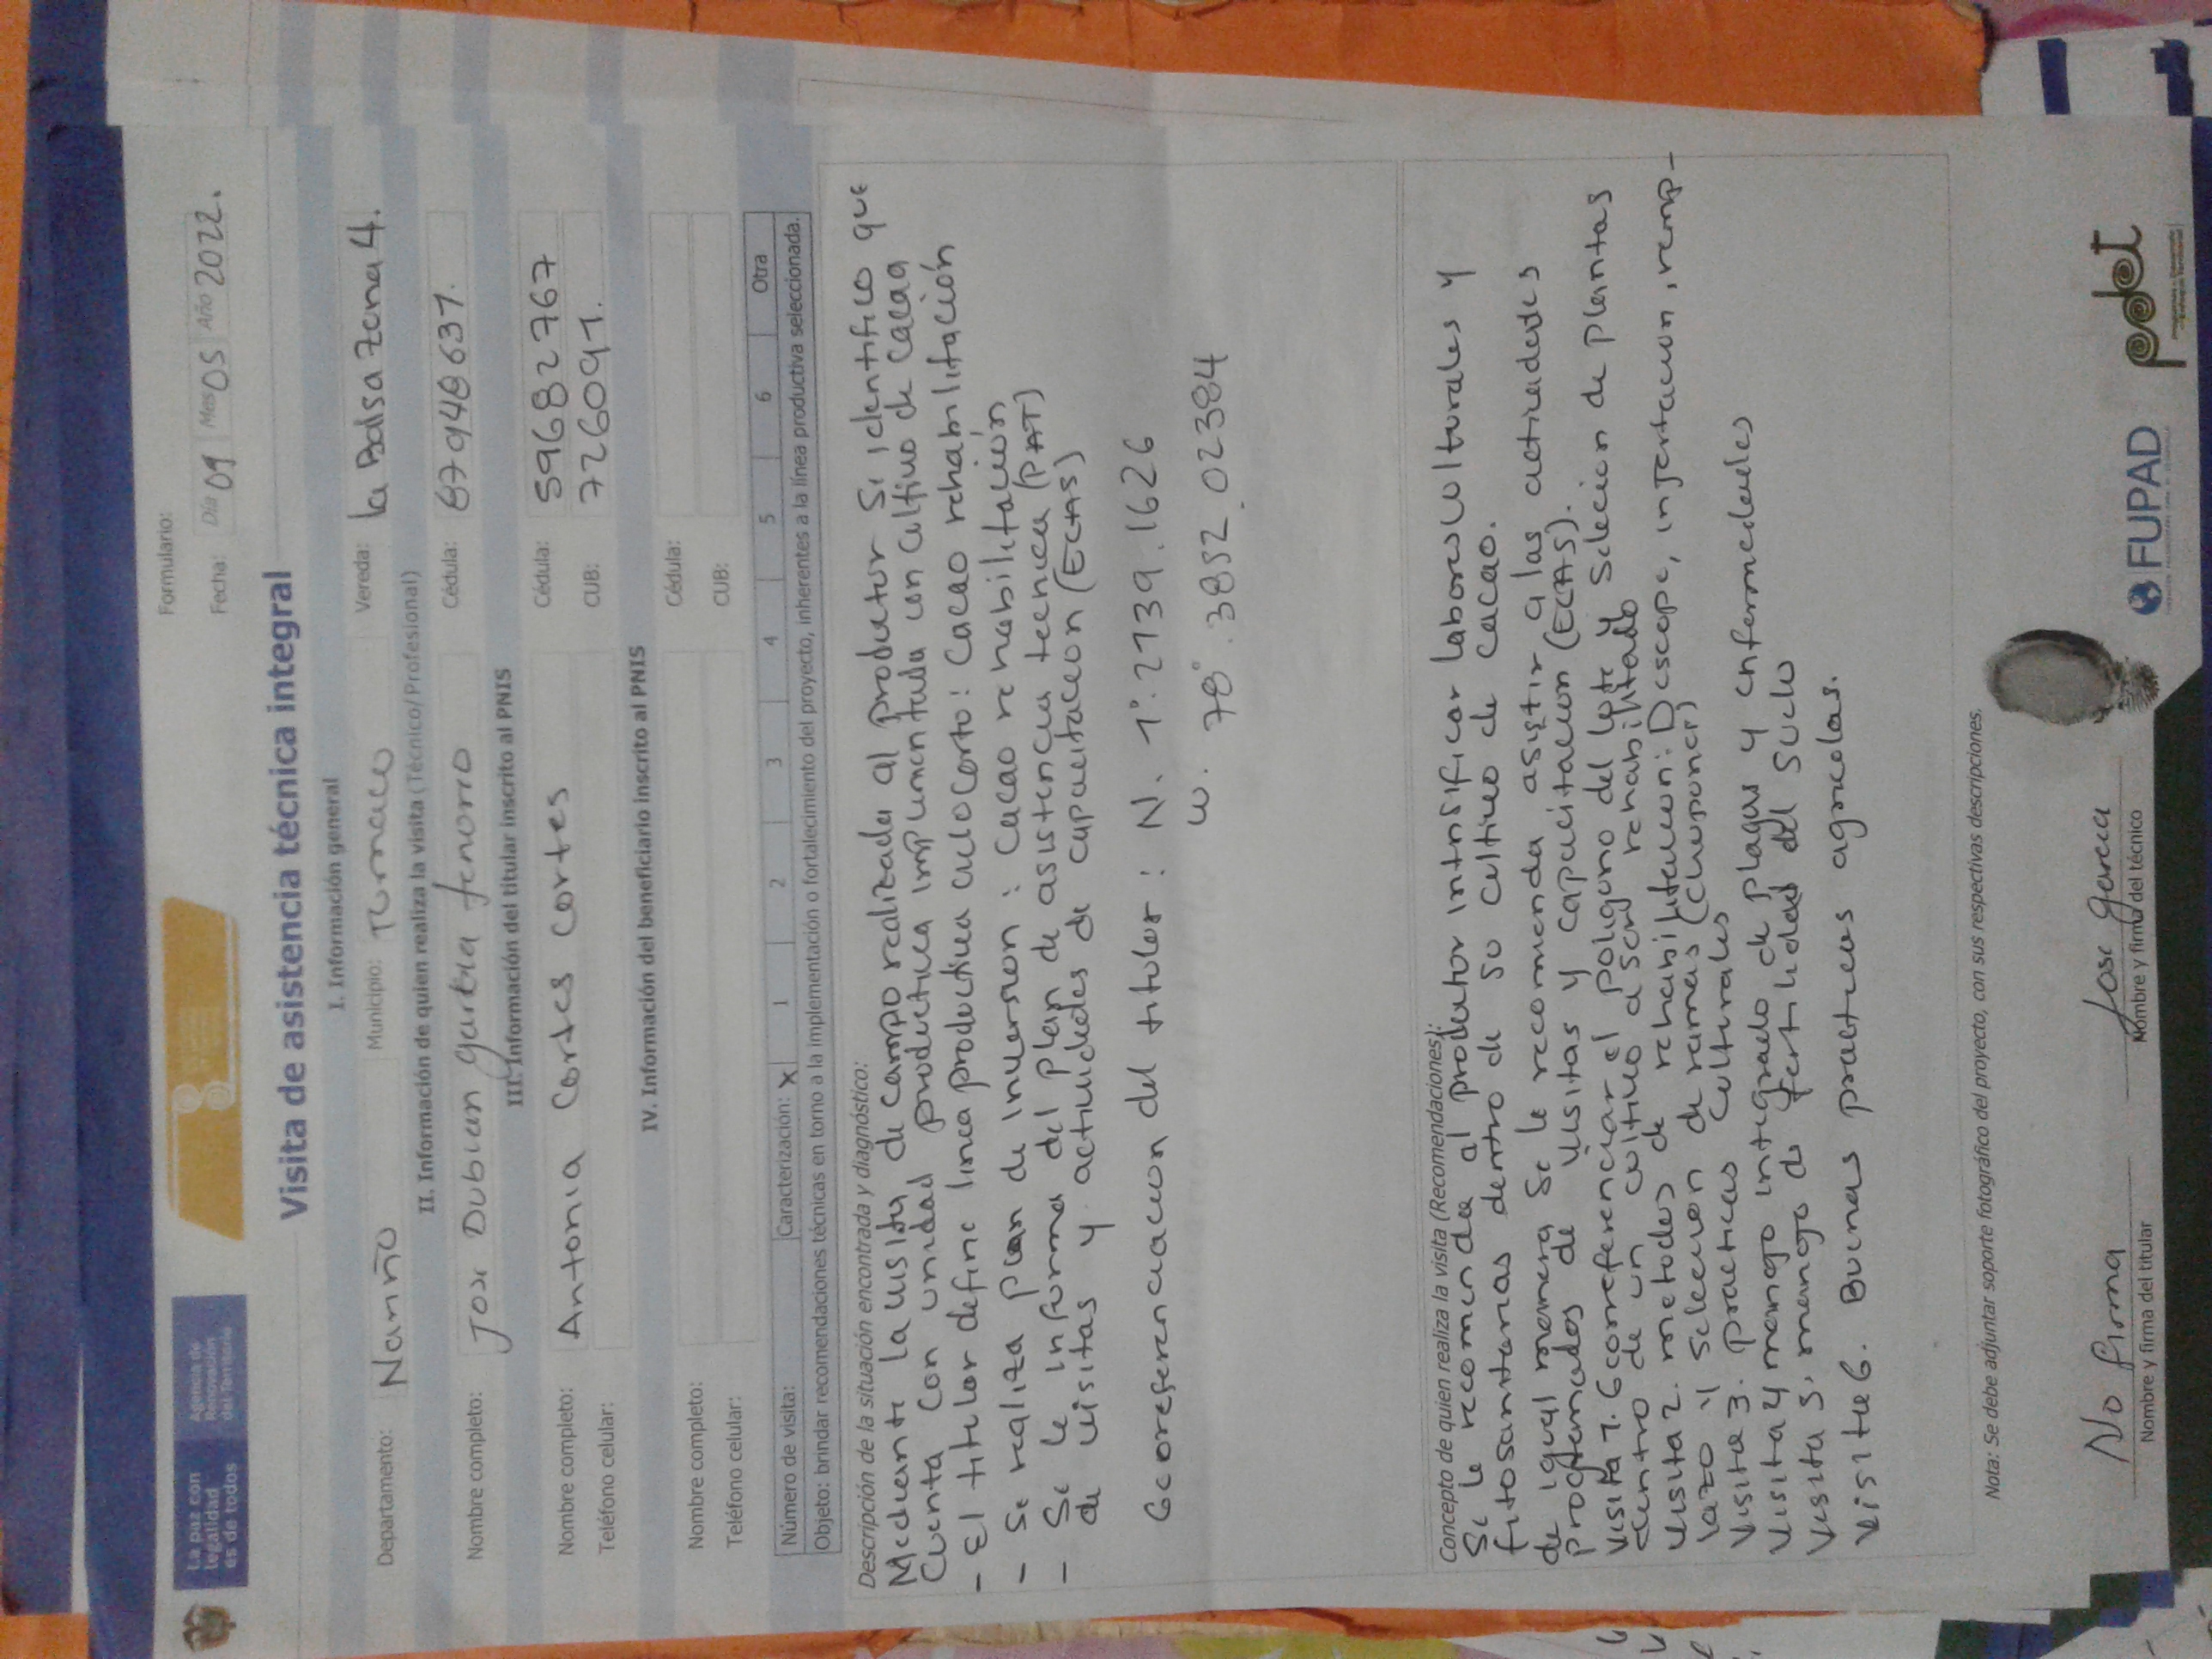 La paz con
legalidad
es de todos
Agencia de
Renovación
del Territorio
Formulario:
Fecha: Día 09 Mes 05 Año 2022.
Visita de asistencia técnica integral
I. Información general
Departamento: Nariño Municipio: Tumaco Vereda: la Balsa zona 4.
II. Información de quien realiza la visita (Técnico/Profesional)
Nombre completo: Jose Dubian garcia tenorio Cédula: 87948637.
III. Información del titular inscrito al PNIS
Nombre completo: Antonia Cortes Cortes Cédula: 59682767
Teléfono celular: CUB: 726091.
IV. Información del beneficiario inscrito al PNIS
Nombre completo: Cédula:
Teléfono celular: CUB:
Número de visita: Caracterización: X 1 2 3 4 5 6 Otra
Objeto: brindar recomendaciones técnicas en torno a la implementación o fortalecimiento del proyecto, inherentes a la línea productiva seleccionada.
Descripción de la situación encontrada y diagnóstico:
Mediante la visita de campo realizada al productor Se identifico que
Cuenta con unidad productiva implementada con cultivo de cacao
- El titular define linea productiva ciclo corto: Cacao rehabilitación
- Se realiza plan de inversion: cacao rehabilitación
- Se le informa del plan de asistencia tecnica (PAT)
de visitas y actividades de capacitacion (ECAS)
Georeferenciacion del titular: N. 1°. 2739.1626
W. 78°. 3852.02384
Concepto de quien realiza la visita (Recomendaciones):
Se le recomienda al productor intensificar labores culturales y
fitosanitarias dentro de su cultivo de cacao.
de igual manera Se le recomienda asistir a las actividades
Programadas de visitas y capacitacion (ECAS).
Visita 1. Georeferenciar el poligono del lote y Selecion de plantas
dentro de un cultivo a ser rehabilitado
visita 2. metodos de rehabilitacion: Descope, injertacion, remp-
lazo y seleccion de ramas (chuponer)
Visita 3. practicas culturales
Visita 4 manejo integrado de plagas y enfermedades
Visita 5. manejo de fertilidad del suelo
Visita 6. Buenas practicas agricolas.
Nota: Se debe adjuntar soporte fotográfico del proyecto, con sus respectivas descripciones.
No firma Jose garcia
Nombre y firma del titular Nombre y firma del técnico
FUPAD pdet